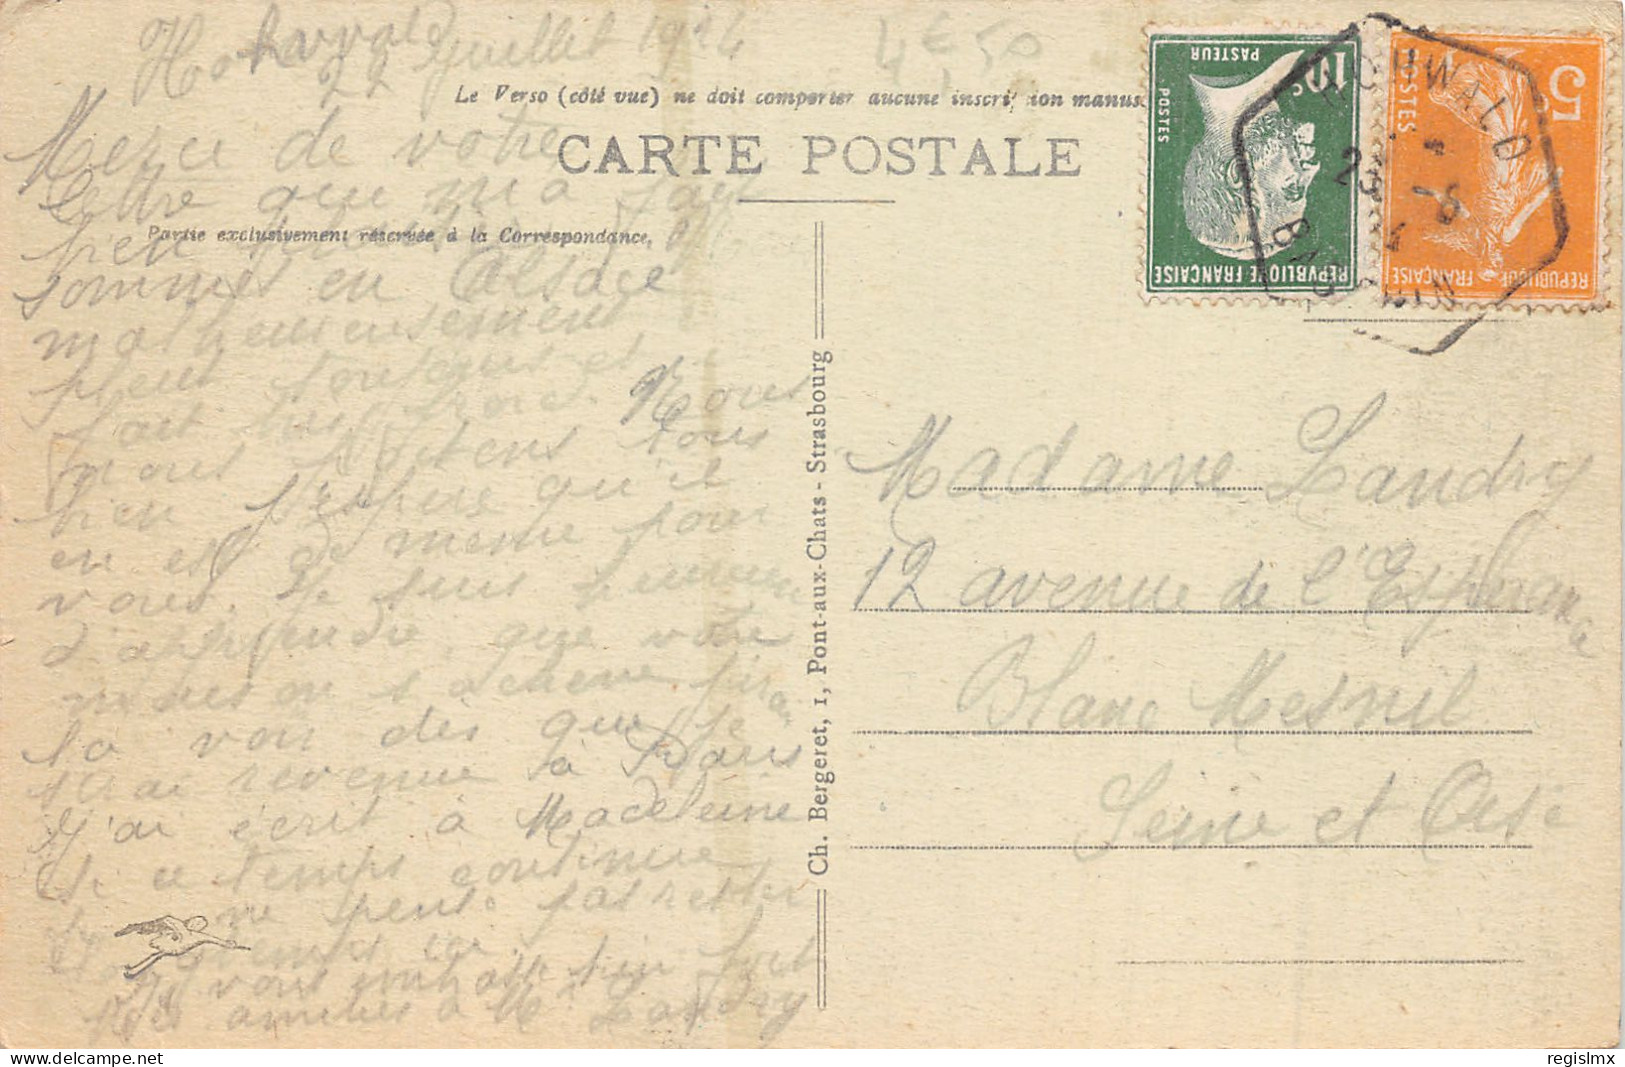 Hohwald
22 Juillet 1924
4€50
Le Verso (côté vue) ne doit comporter aucune inscription manus
CARTE POSTALE
Partie exclusivement réservée à la Correspondance,
Merci de votre
lettre qui m'a fait
bien
sommes en Alsace
malheureusement
pleut toujours et
fait très froid. Nous
nous portons tous
bien j'espère qu'il
en est de même pour
vous. Je suis heureuse
d'apprendre que votre
maison s'achève j'irai
la voir dès que je
serai revenue à Paris
J'ai écrit à Madeleine
Si ce temps continue
je ne pense pas rester
longtemps ici
vous embrasse bien fort
Mes amitiés à M Landry
Ch. Bergeret, 1, Pont-aux-Chats - Strasbourg
10c
PASTEUR
POSTES
REPVBLIQUE FRANÇAISE
5c
POSTES
REPUBLIQUE FRANÇAISE
HOHWALD
23 -8
24
BAS RHIN
Madame Landry
12 avenue de l'Espérance
Blanc Mesnil
Seine et Oise
regislmx